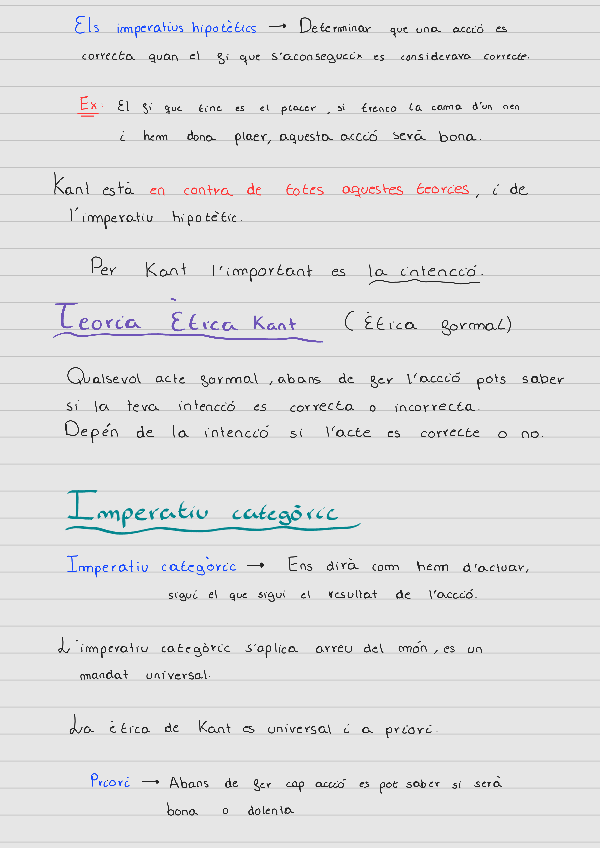 Els imperatius hipotètics → Determinar que una acció es
correcta quan el fi que s'aconsegueix es considerava correcte.
Ex. El fi que tinc es el placer, si trenco la cama d'un nen
i hem dona plaer, aquesta accció serà bona.
Kant està en contra de totes aquestes teories, i de
l'imperatiu hipotètic.
Per Kant l'important es la intencció.
Teoria Ètica Kant (Ètica formal)
Qualsevol acte formal, abans de fer l'accció pots saber
si la teva intencció es correcta o incorrecta.
Depén de la intencció si l'acte es correcte o no.
Imperatiu categòric
Imperatiu categòric → Ens dirà com hem d'actuar,
sigui el que sigui el resultat de l'accció.
L'imperatiu categòric s'aplica arreu del món, es un
mandat universal.
La ètica de Kant es universal i a priori.
Priori → Abans de fer cap acció es pot saber si serà
bona o dolenta